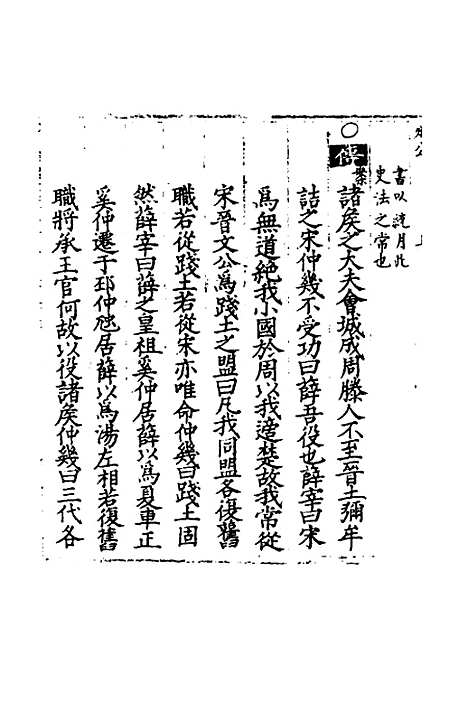 書以繞月此
史法之常也
〇傳 諸矦之大夫會城成周滕人不至晉士彌牟
詰之宋仲幾不受功曰薛吾役也薛宰曰宋
爲無道絶我小國於周以我適楚故我常從
宋晉文公爲踐土之盟曰凡我同盟各復舊
職若從踐土若從宋亦唯命仲幾曰踐土固
然薛宰曰薛之皇祖奚仲居薛以爲夏車正
奚仲遷于邳仲虺居薛以爲湯左相若復舊
職將承王官何故以役諸矦仲幾曰三代各